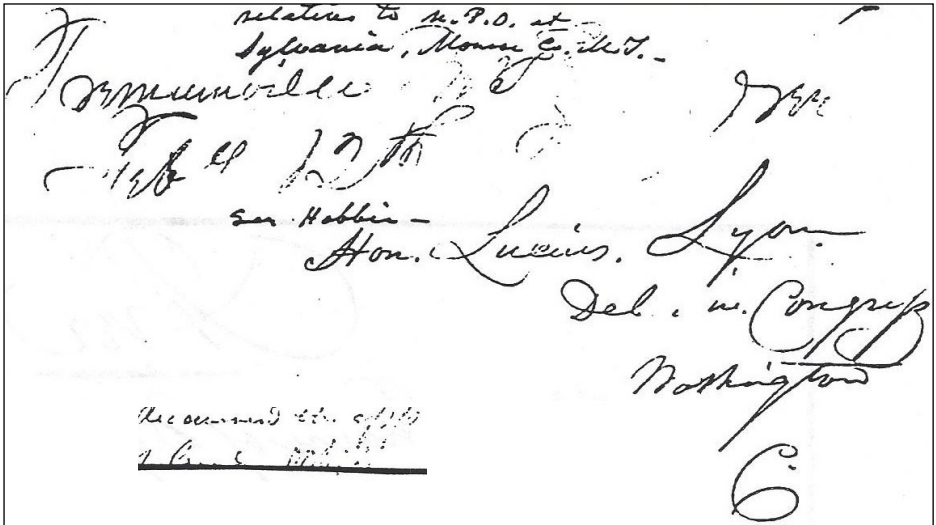 relative to n. P.O. at
Sylvania, Monroe Co. M.T. -
Tremainville Free
Feby 12th
Gen Hobbie -
Hon. Lucius. Lyon.
Del. in. Congress
Washington
C
Recommend the